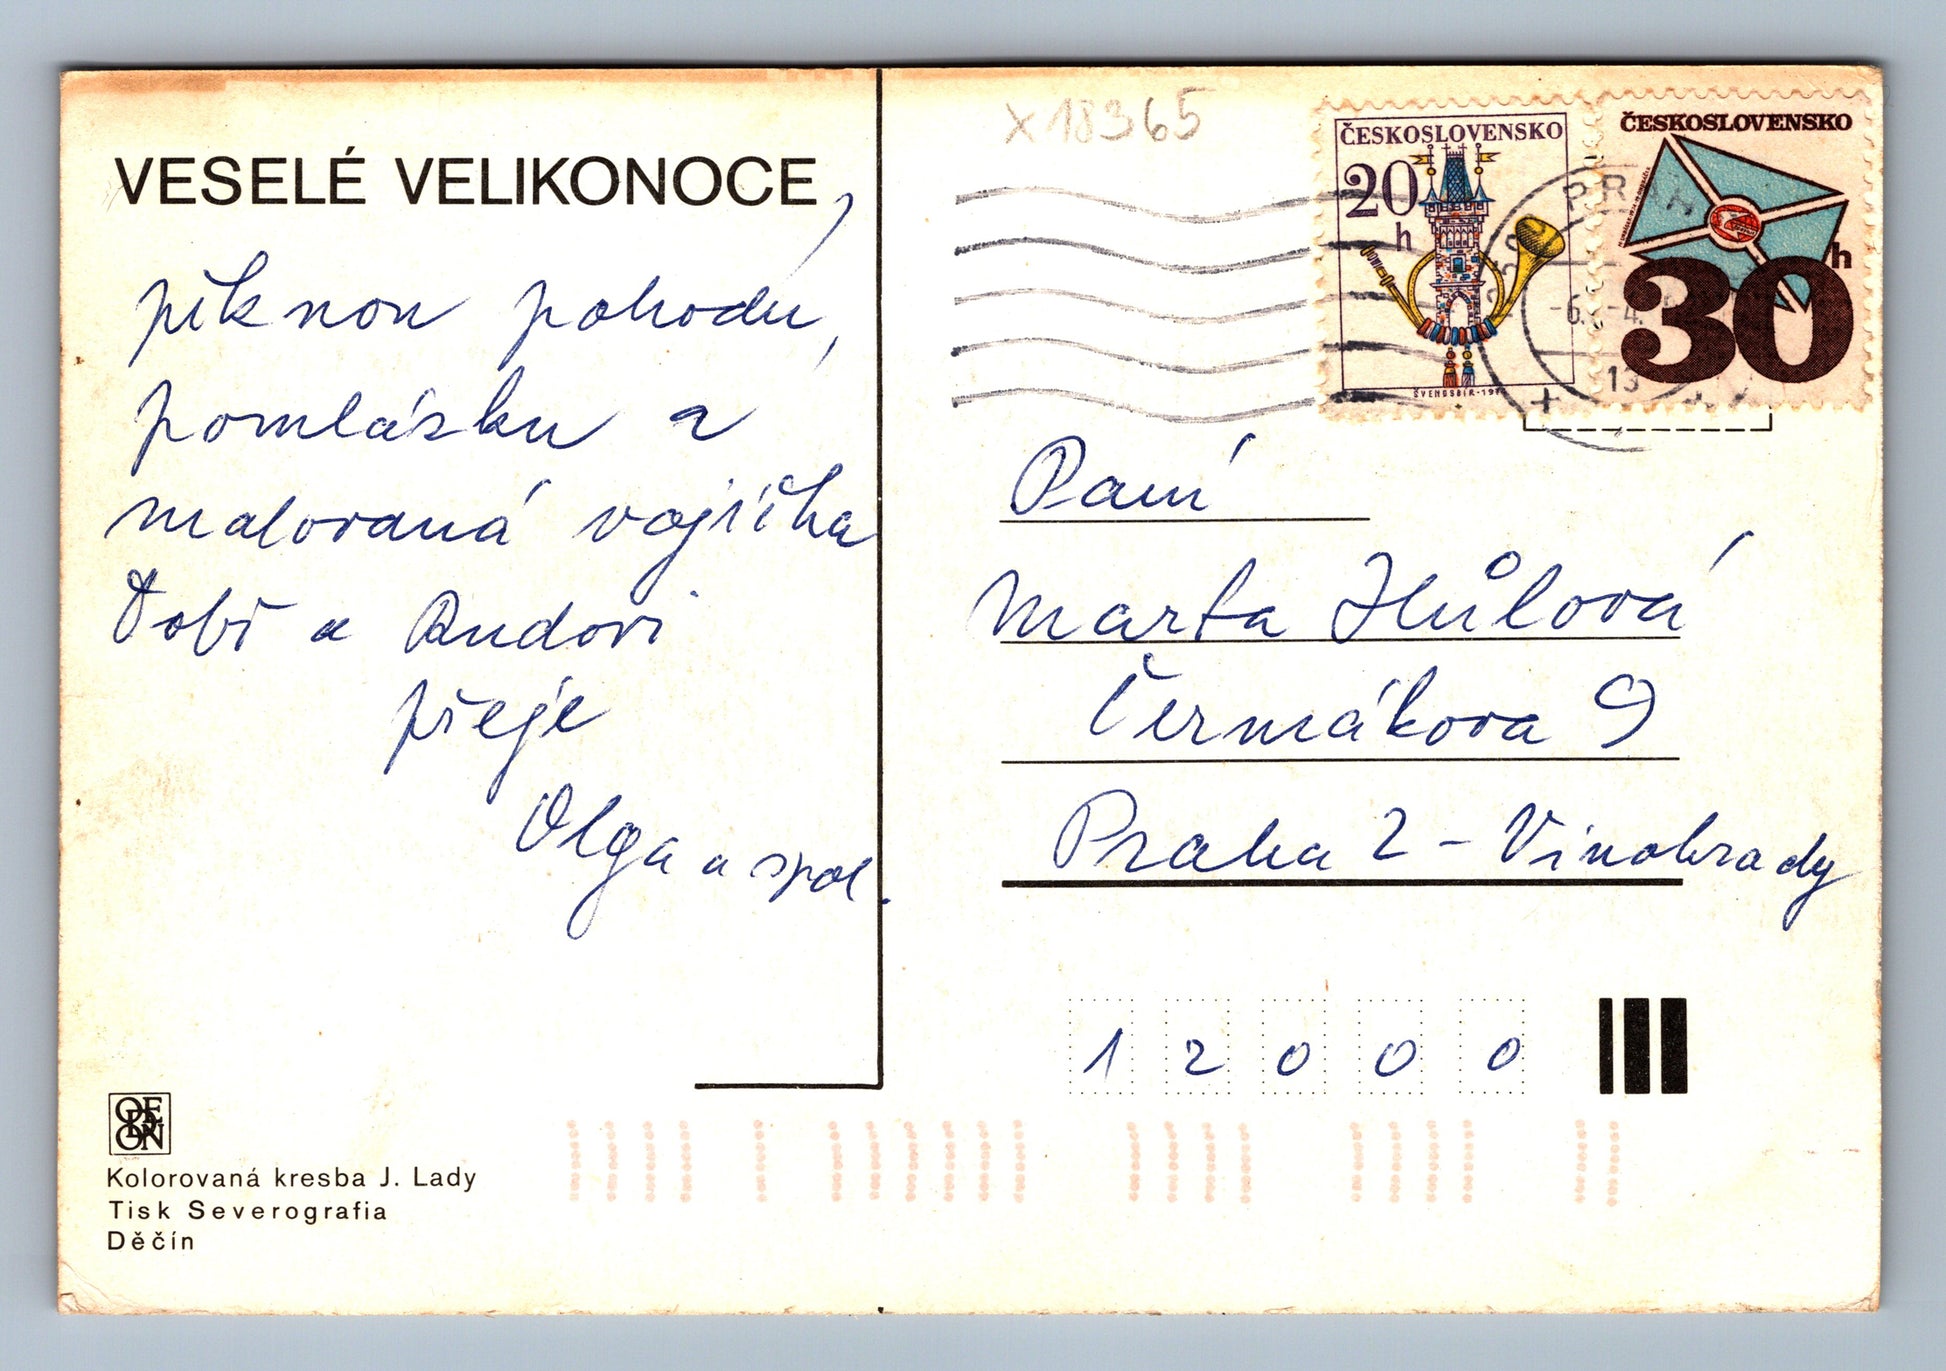 VESELÉ VELIKONOCE,
pěknou pohodu,
pomlázku a
malovaná vajíčka
Tobě a Rudovi
přeje
Olga a spol.
ODEON
Kolorovaná kresba J. Lady
Tisk Severografia
Děčín
x 18365
ČESKOSLOVENSKO
20
h
ŠVENGSBÍR
ČESKOSLOVENSKO
30
h
PRAH
-6.-4.
13
Paní
Marta Hůlová
Čermákova 9
Praha 2 - Vinohrady
1 2 0 0 0